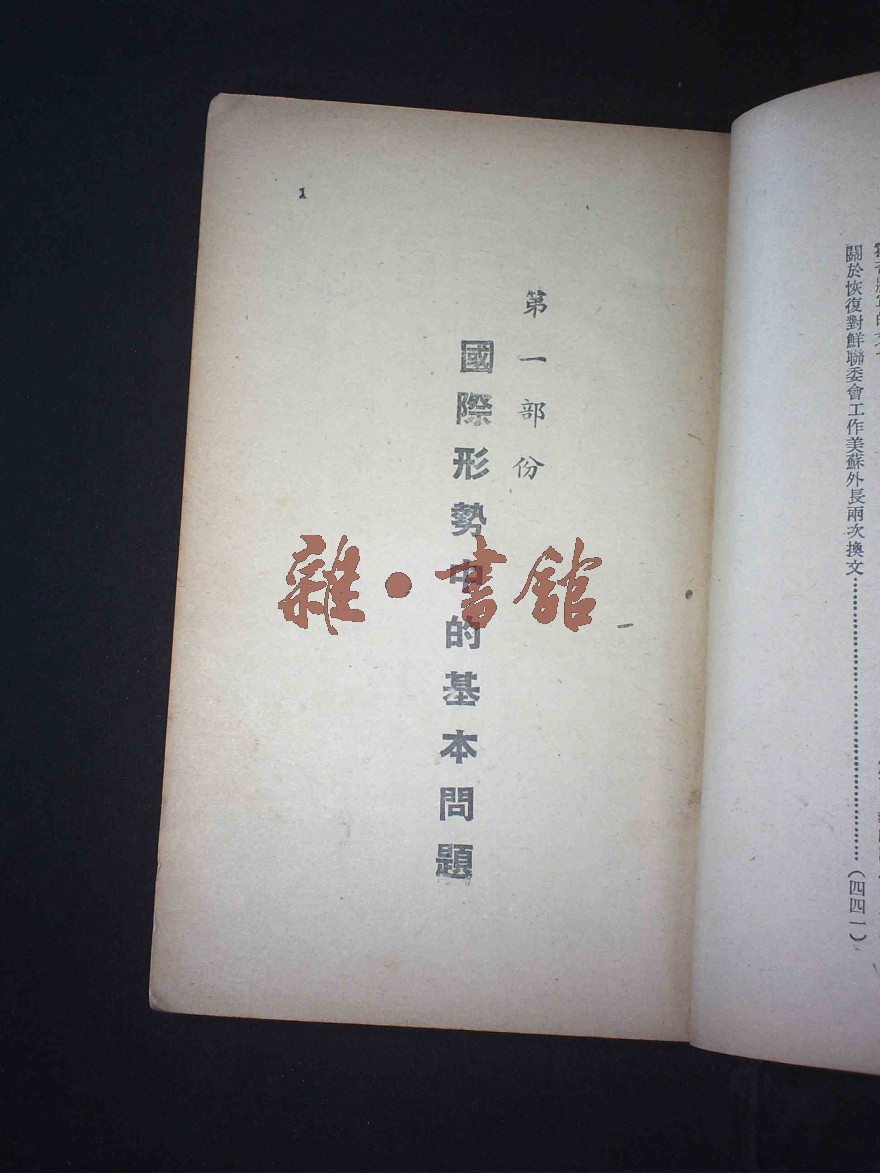 關於恢復對鮮聯委會工作美蘇外長兩次換文……………………………(四四一)
1
第一部份
國際形勢中的基本問題
雜·書館